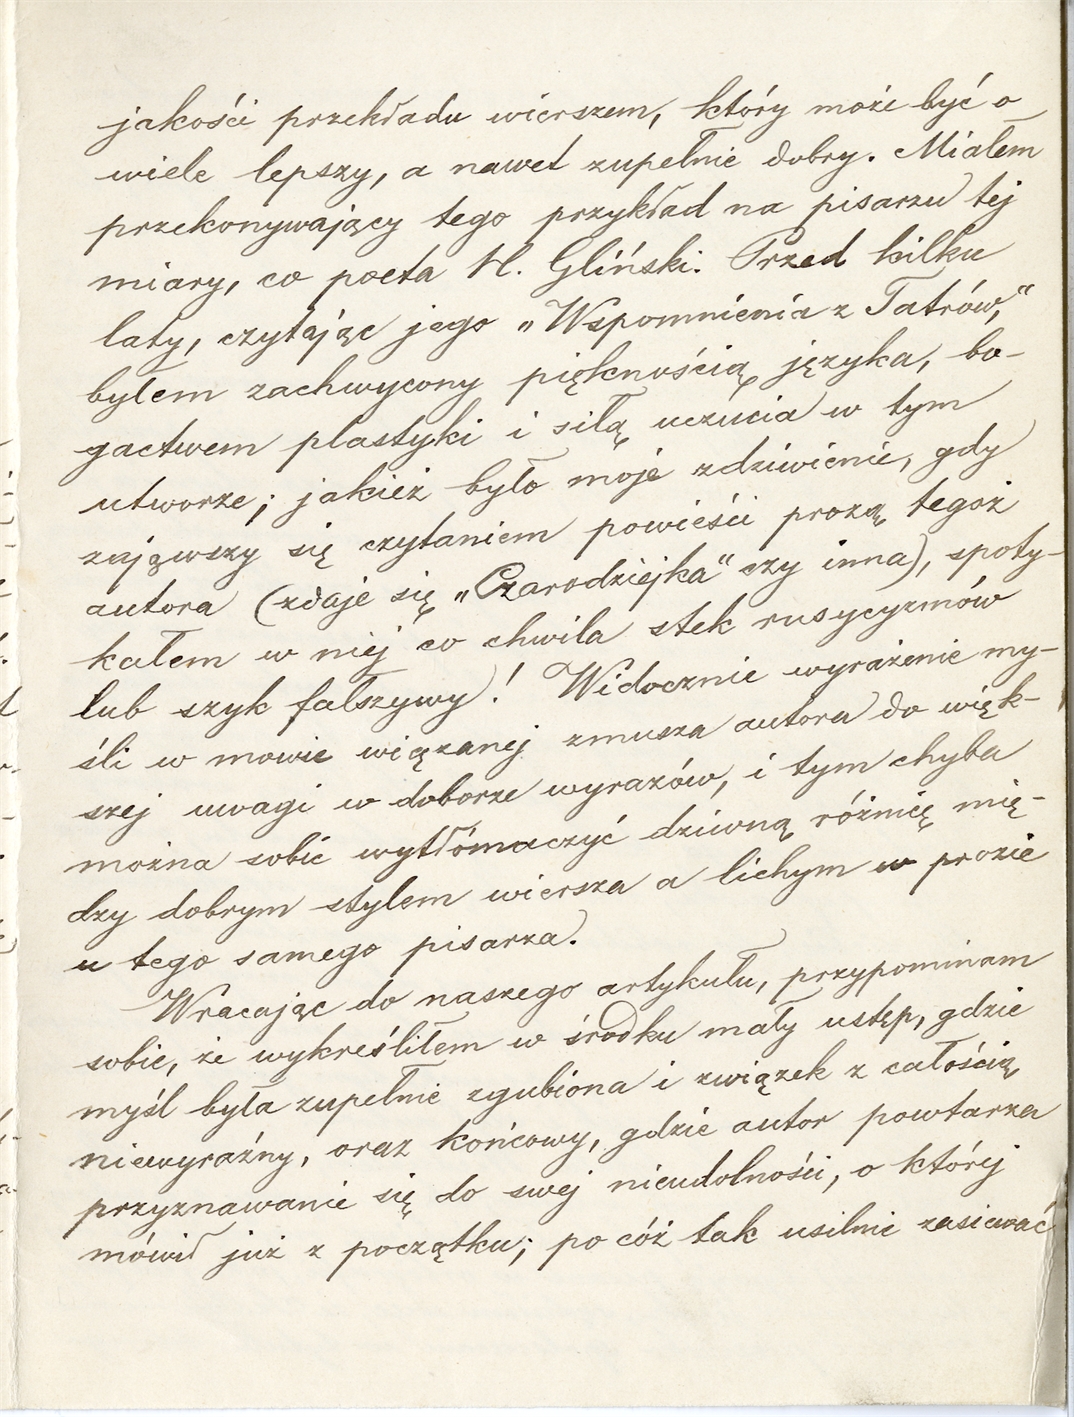 jakości przekładu wierszem, który może być o
wiele lepszy, a nawet zupełnie dobry. Miałem
przekonywający tego przykład na pisarzu tej
miary, co poeta H. Gliński. Przed kilku
laty, czytając jego „Wspomnienia z Tatrów,"
byłem zachwycony pięknością języka, bo-
gactwem plastyki i siłą uczucia w tym
utworze; jakież było moje zdziwienie, gdy
zająwszy się czytaniem powieści prozą tegoż
autora (zdaje się „Czarodziejka" czy inna), spoty-
kałem w niej co chwila stek rusycyzmów
lub szyk fałszywy! Widocznie wyrażenie my-
śli w mowie wiązanej zmusza autora do więk-
szej uwagi w doborze wyrazów, i tym chyba
można sobie wytłómaczyć dziwną różnicę mię-
dzy dobrym stylem wiersza a lichym w prozie
u tego samego pisarza.
Wracając do naszego artykułu, przypominam
sobie, że wykreśliłem w środku mały ustęp, gdzie
myśl była zupełnie zgubiona i związek z całością
niewyraźny, oraz końcowy, gdzie autor powtarza
przyznawanie się do swej nieudolności, o której
mówił już z początku; po cóż tak usilnie zasiewać